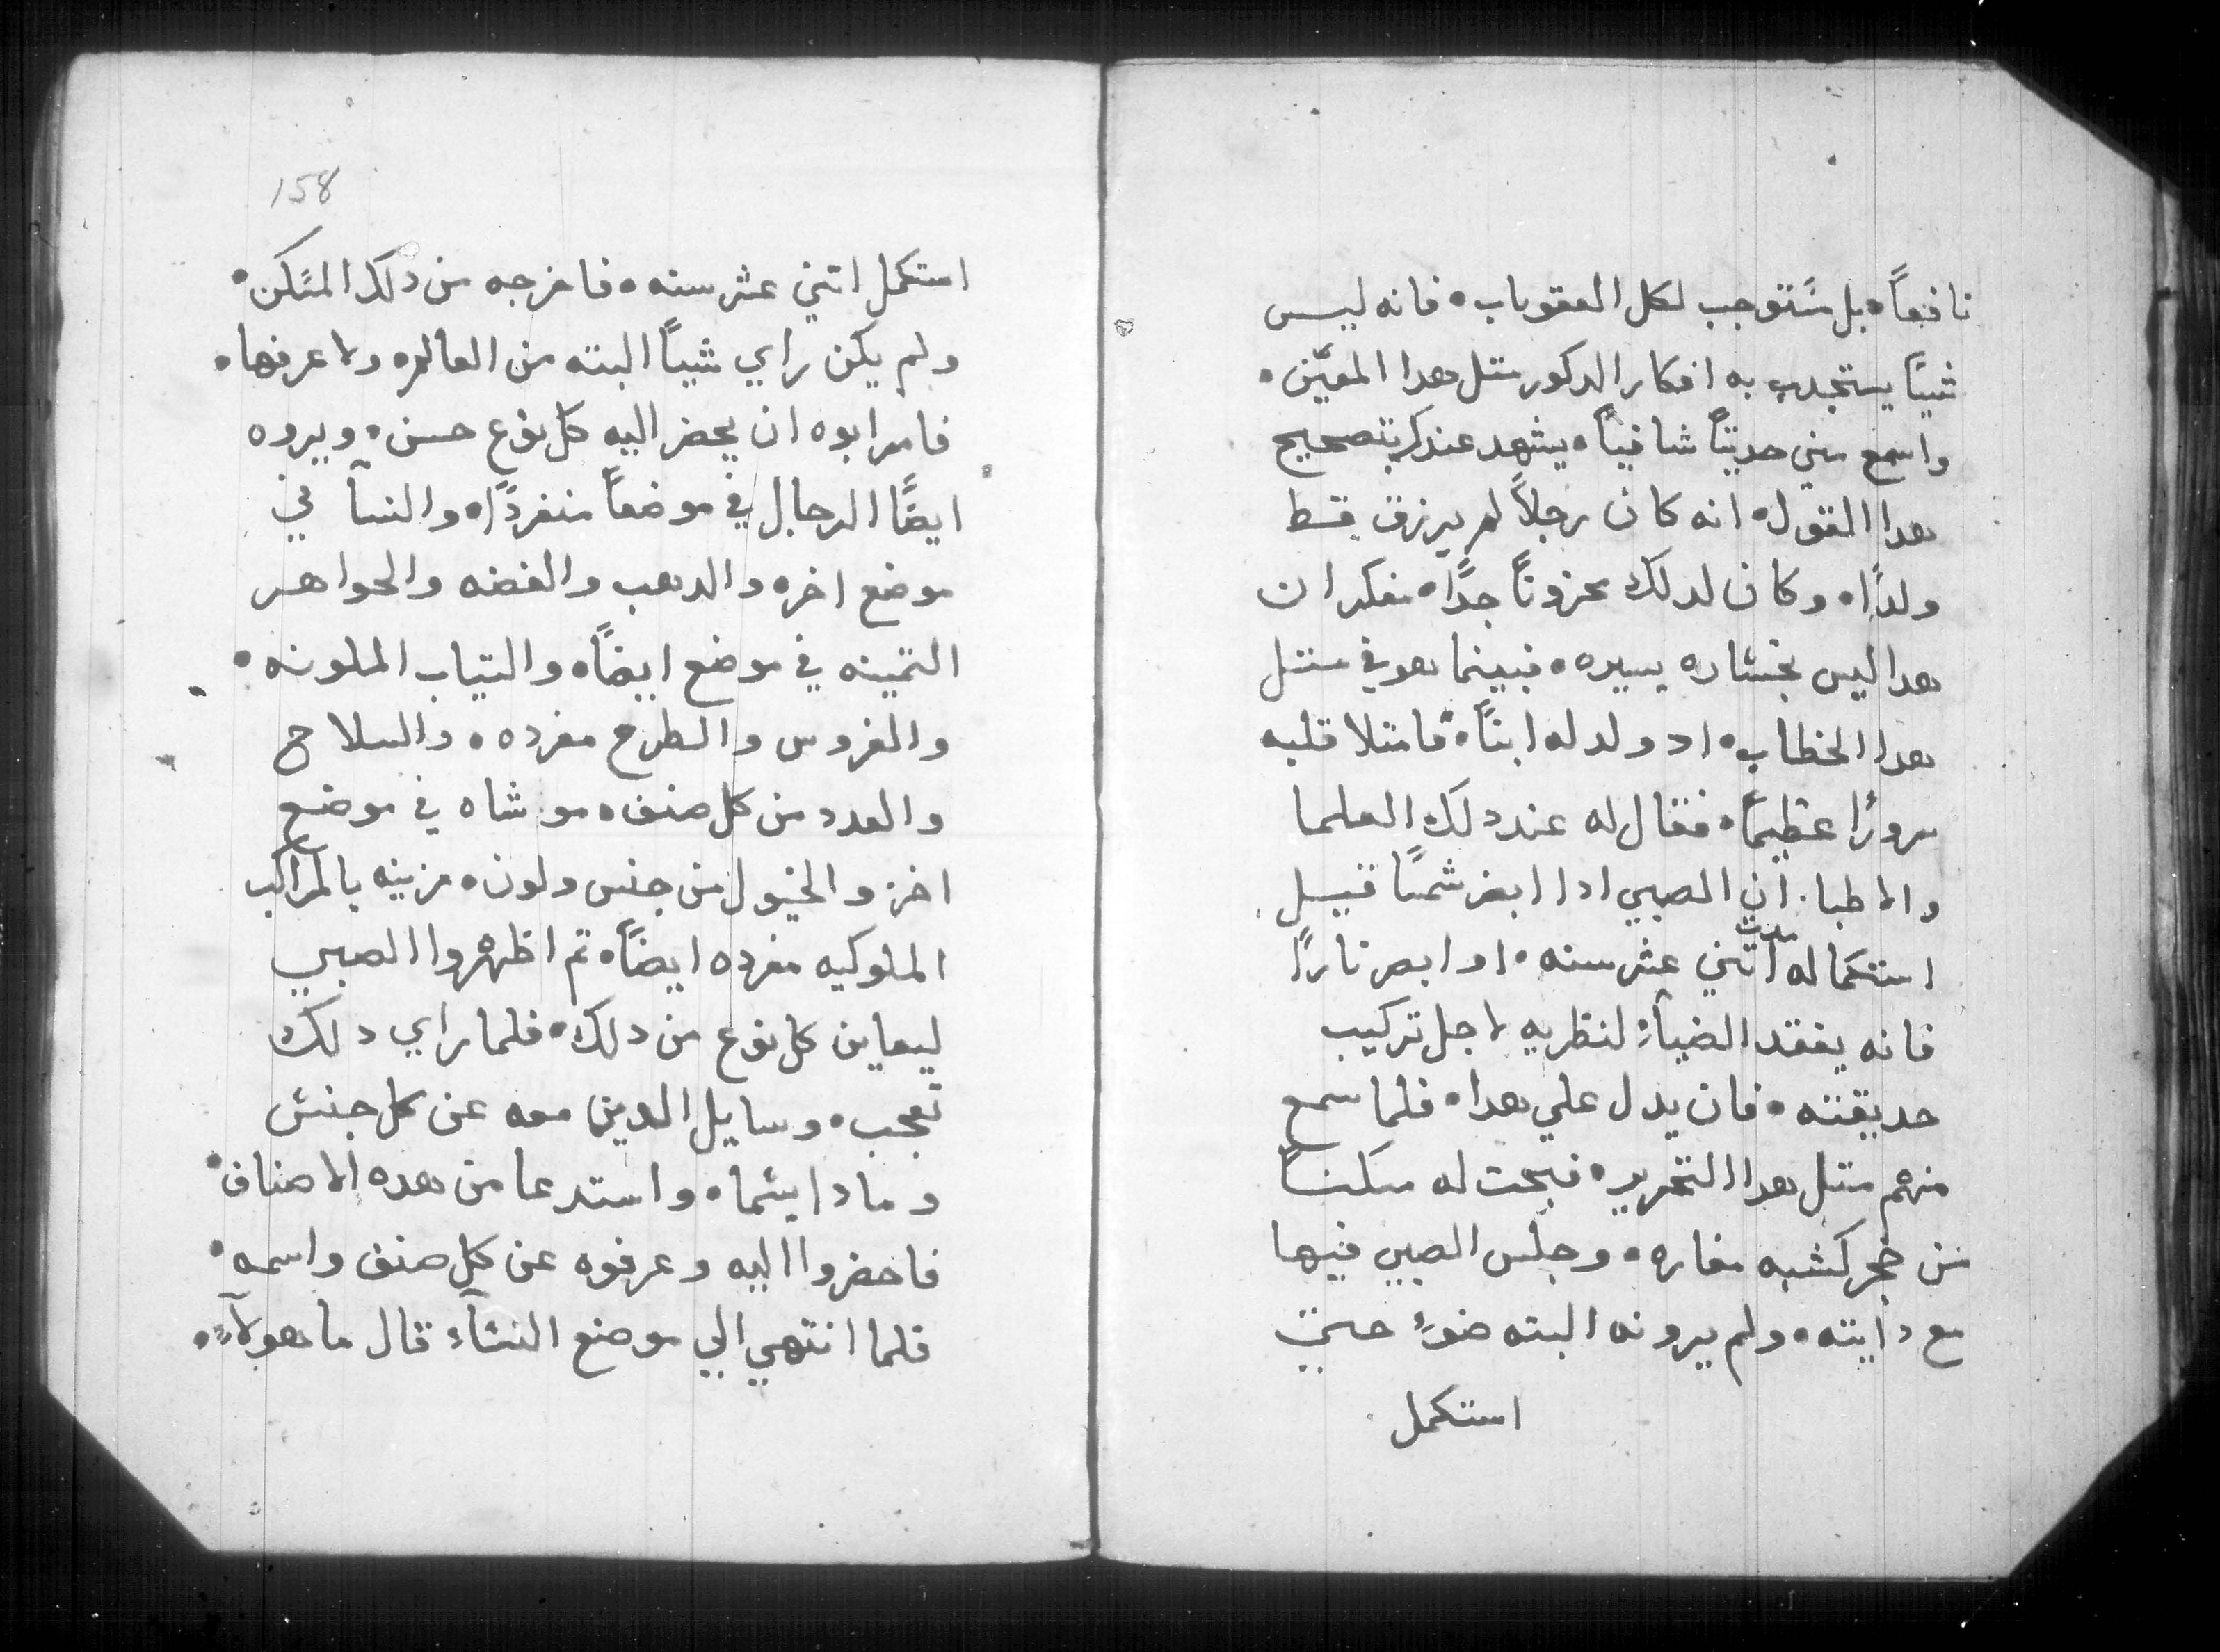 نافعاً • بل مستوجب لكل العقوبات • فانه ليس
شيئاً يستجدب به افكار الدكور متل هدا المعيّن •
واسمع مني حديتاً شافياً • يشهد عندك بتصحيح
هدا القول • انه كان رجلاً لم يرزق قط
ولداً • وكان لدلك محزوناً جداً • مفكر ان
هدا ليس بخساره يسيره • فبينما هو في متل
هدا الخطاب • اد ولد له ابناً • فامتلا قلبه
سروراً عظيماً • فقال له عند دلك العلما
والاطبا . ان الصبي ادا ابصر شمساً قبل
استكماله مدت اتني عشر سنه • او ابصر ناراً
فانه يفقد الضيآء لنظريه لاجل تركيب
حديقته • فان يدل علي هدا • فلما سمع
منهم متل هدا التحرير • فبحت له مسكناً
من حجر كشبه مغاره • وجلس الصبي فيها
مع دايته • ولم يرونه البته ضوءً حتي
استكمل
158
استكمل اتني عشر سنه • فاخرجه من دلك المسكن •
ولم يكن راي شياً البته من العالم • ولا عرفها •
فامر ابوه ان يحضر اليه كل نوع حسن • ويروه
ايضاً الرجال في موضعاً منفرداً • والنسآ في
موضع اخر • والدهب والفضه والجواهر
التمينه في موضع ايضاً • والتياب الملونه •
والفروس والطرح مفرده • والسلاح
والعدد من كل صنف • موشاه في موضع
اخر • والخيول من جنس ولون • مزينه بالمراكب
الملوكيه مفرده ايضاً • تم اظهروا الصبي
ليعاين كل نوع من دلك • فلما راي دلك
تعجب • وسايل الدين معه عن كل جنس
وما دا يسُما • واستدعا من هده الاصناف •
فاحضروا اليه وعرفوه عن كل صنف واسمه •
فلما انتهي الي موضع النسآء قال ما هولآء •